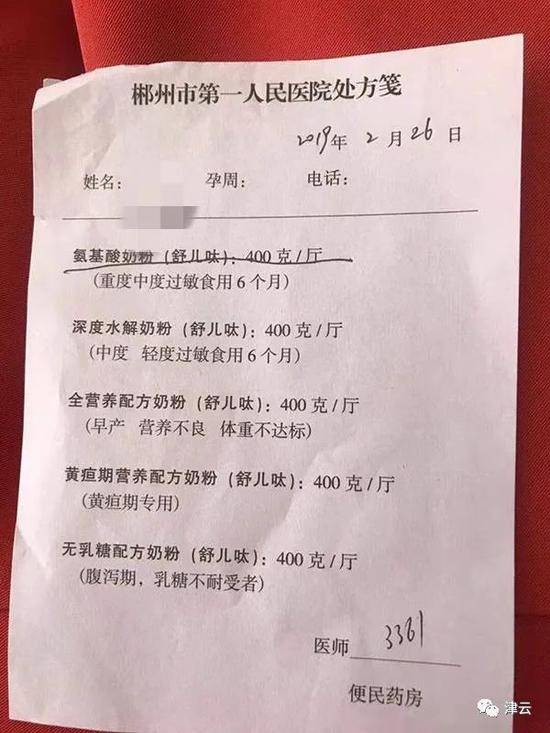 郴州市第一人民医院处方笺
2019年 2 月 26 日
姓名： 孕周： 电话：
氨基酸奶粉（舒儿呔）：400 克 / 厅
（重度中度过敏食用 6 个月）
深度水解奶粉（舒儿呔）：400 克 / 厅
（中度 轻度过敏食用 6 个月）
全营养配方奶粉（舒儿呔）：400 克 / 厅
（早产 营养不良 体重不达标）
黄疸期营养配方奶粉（舒儿呔）：400 克 / 厅
（黄疸期专用）
无乳糖配方奶粉（舒儿呔）：400 克 / 厅
（腹泻期，乳糖不耐受者）
医师 3361
便民药房
津云